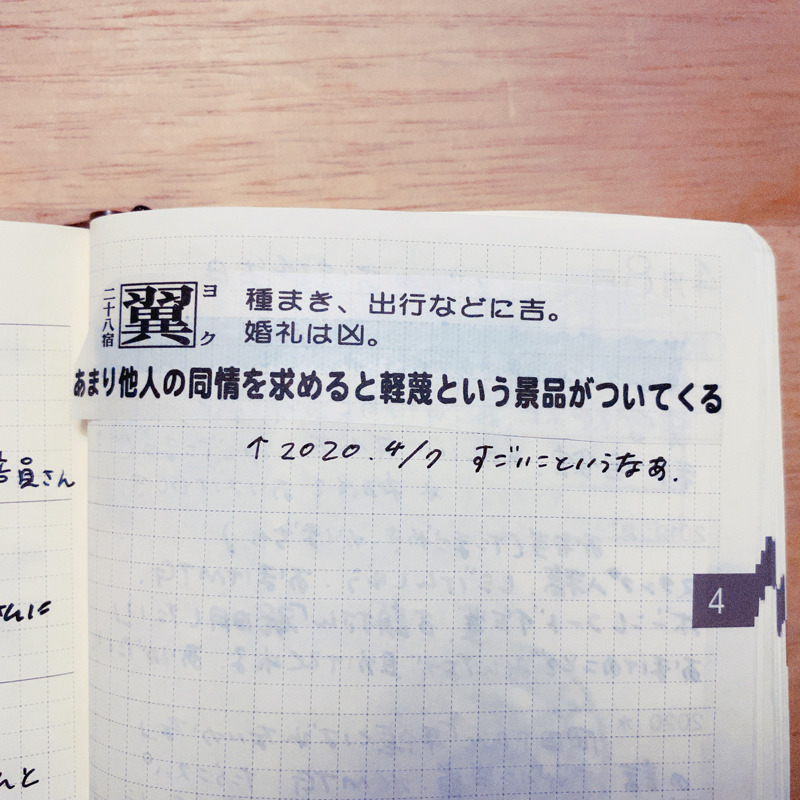 二十八宿 翼 ヨク
種まき、出行などに吉。
婚礼は凶。
あまり他人の同情を求めると軽蔑という景品がついてくる
↑2020.4/7 すごいこというなぁ.
員さん
さんに
んと
4